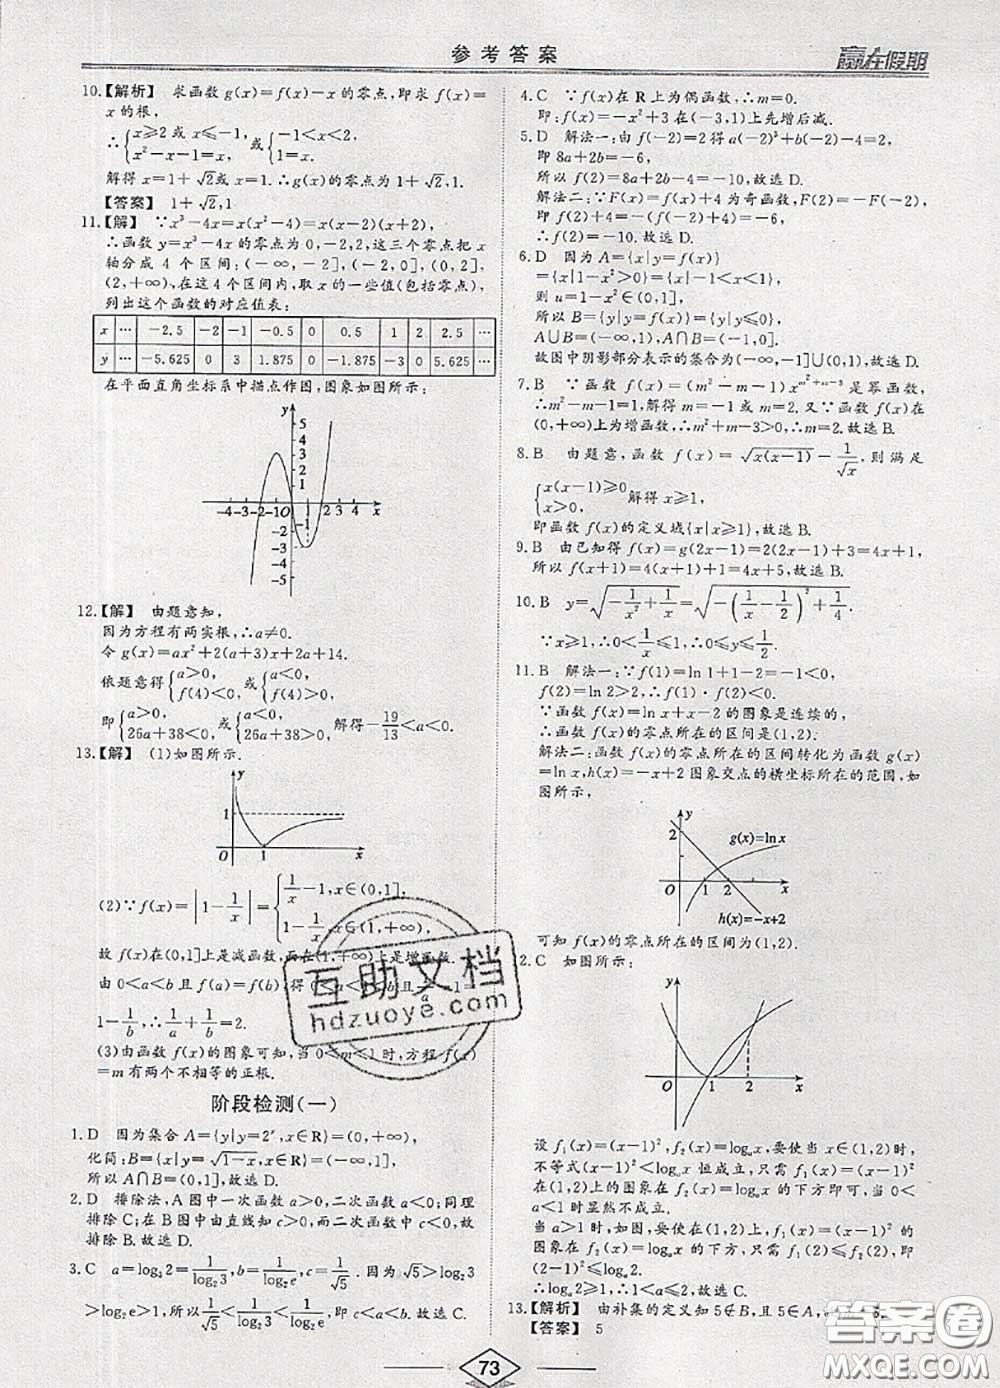 参考答案
赢在假期
10.【解析】 求函数 g(x)=f(x)-x 的零点,即求 f(x)=
x 的根,
∴{x≥2或 x≤-1, x²-x-1=x 或{-1<x<2, 1=x.
解得 x=1+√2或 x=1.∴g(x)的零点为 1+√2,1.
【答案】 1+√2,1
11.【解】 ∵x³-4x=x(x²-4)=x(x-2)(x+2),
∴函数 y=x³-4x 的零点为 0,-2,2,这三个零点把 x
轴分成 4 个区间:(-∞,-2],(-2,0],(0,2],
(2,+∞),在这 4 个区间内,取 x 的一些值(包括零点),
列出这个函数的对应值表:
x … -2.5 -2 -1 -0.5 0 0.5 1 2 2.5 …
y … -5.625 0 3 1.875 0 -1.875 -3 0 5.625 …
在平面直角坐标系中描点作图,图象如图所示:
y
5
4
3
2
1
-4 -3 -2 -1 O 1 2 3 4 x
-1
-2
-3
-4
-5
12.【解】 由题意知,
因为方程有两实根,∴a≠0.
令 g(x)=ax²+2(a+3)x+2a+14.
依题意得{a>0, f(4)<0 或{a<0, f(4)>0,
即{a>0, 26a+38<0 或{a<0, 26a+38>0, 解得-19/13<a<0.
13.【解】 (1)如图所示.
y
1
O 1 x
(2)∵f(x)=|1-1/x|={1/x-1,x∈(0,1], 1-1/x,x∈(1,+∞),
故 f(x)在(0,1]上是减函数,而在(1,+∞)上是增函数.
由 0<a<b 且 f(a)=f(b),得 0<a<1<b 且 1/a-1=
1-1/b,∴1/a+1/b=2.
(3)由函数 f(x)的图象可知,当 0<m<1 时,方程 f(x)
=m 有两个不相等的正根.
阶段检测(一)
1.D 因为集合 A={y|y=2ˣ,x∈R}=(0,+∞),
化简:B={x|y=√(1-x),x∈R}=(-∞,1],
所以 A∩B=(0,1],故选 D.
2.D 排除法,A 图中一次函数 a>0,二次函数 a<0;同理
排除 C;在 B 图中由直线知 c>0,而二次函数中 c<0,故
排除 B.故选 D.
3.C a=log₃2=1/log₂3,b=1/log₂e,c=1/√5. 因为√5>log₂3
>log₂e>1,所以1/√5<1/log₂3<1/log₂e,即 c<a<b.故选 C.
4.C ∵f(x)在 R 上为偶函数,∴m=0.
即:f(x)=-x²+3 在(-3,1)上先增后减.
5.D 解法一:由 f(-2)=2 得 a(-2)³+b(-2)-4=2,
即 8a+2b=-6,
所以 f(2)=8a+2b-4=-10,故选 D.
解法二:∵F(x)=f(x)+4 为奇函数,F(2)=-F(-2),
即 f(2)+4=-(f(-2)+4)=-6,
∴f(2)=-10.故选 D.
6.D 因为 A={x|y=f(x)}
={x|1-x²>0}={x|-1<x<1},
则 u=1-x²∈(0,1],
所以 B={y|y=f(x)}={y|y≤0},
A∪B=(-∞,1),A∩B=(-1,0],
故图中阴影部分表示的集合为(-∞,-1]∪(0,1),故选 D.
7.B ∵函数 f(x)=(m²-m-1)x^(m²+m-3) 是幂函数,
∴m²-m-1=1,解得 m=-1 或 m=2.又∵函数 f(x)在
(0,+∞)上为增函数,∴m²+m-3>0,∴m=2.故选 B.
8.B 由题意,函数 f(x)=√(x(x-1))-1/√x.则满足
{x(x-1)≥0 x>0, 解得 x≥1,
即函数 f(x)的定义域{x|x≥1},故选 B.
9.B 由已知得 f(x)=g(2x-1)=2(2x-1)+3=4x+1,
所以 f(x+1)=4(x+1)+1=4x+5.故选 B.
10.B y=√(-1/x²+1/x)=√(-(1/x-1/2)²+1/4)
∵x≥1,∴0<1/x≤1,∴0≤y≤1/2.
11.B 解法一:∵f(1)=ln 1+1-2=-1<0,
f(2)=ln 2>2,∴f(1)·f(2)<0.
∵函数 f(x)=lnx+x-2 的图象是连续的,
∴函数 f(x)的零点所在的区间是(1,2).
解法二:函数 f(x)的零点所在的区间转化为函数 g(x)
=lnx,h(x)=-x+2 图象交点的横坐标所在的范围,如
图所示,
y
2
g(x)=lnx
O 1 2 x
h(x)=-x+2
可知 f(x)的零点所在的区间为(1,2).
2.C 如图所示:
y
O 1 2 x
设 f₁(x)=(x-1)²,f₂(x)=logₐx,要使当 x∈(1,2)时,
不等式(x-1)²<logₐx 恒成立,只需 f₁(x)=(x-1)²
在(1,2)上的图象在 f₂(x)=logₐx 的下方即可,当 0<
a<1 时显然不成立.
当 a>1 时,如图,要使在(1,2)上,f₁(x)=(x-1)² 的
图象在 f₂(x)=logₐx 的下方,只需 f₁(2)≤f₂(2),即
(2-1)²≤logₐ2.
∴logₐ2≥1,∴1<a≤2.故选 C.
13.【解析】 由补集的定义知 5∉B,且 5∈A,
【答案】 5
73
互助文档
hdzuoye.com
答案圈
MXQE.COM